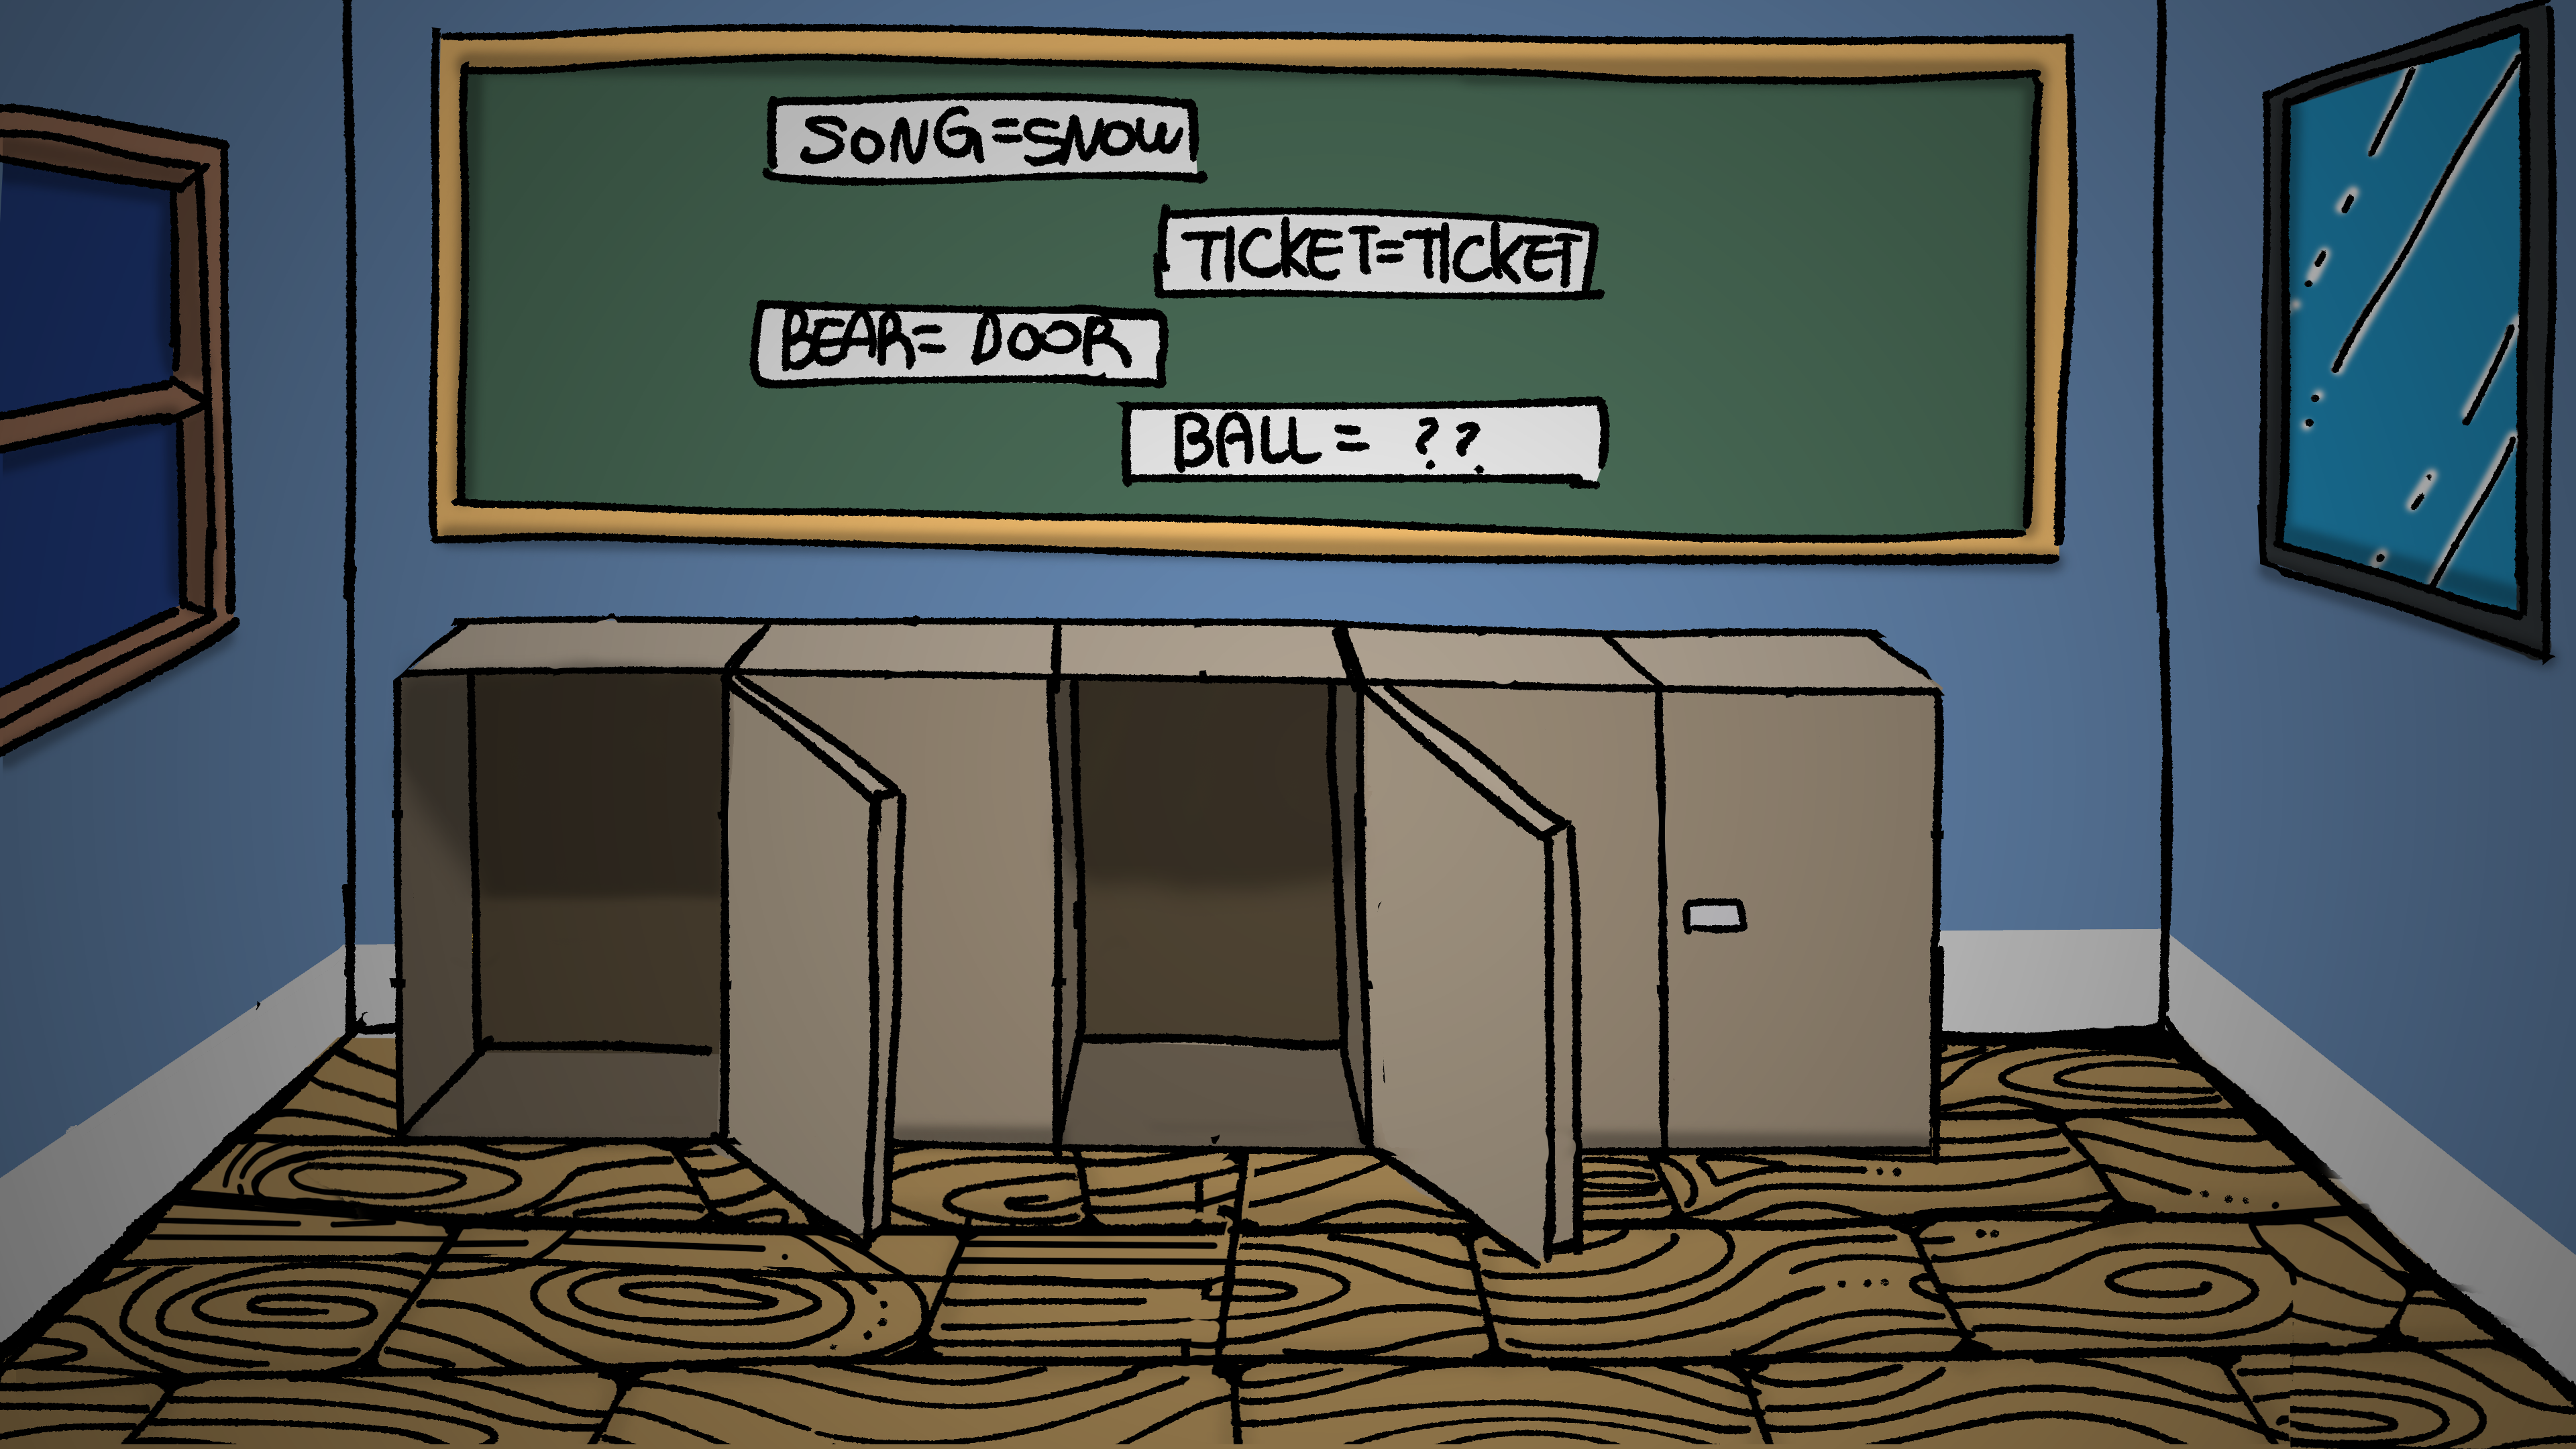 SONG=SNOW
TICKET=TICKET
BEAR= DOOR
BALL= ??